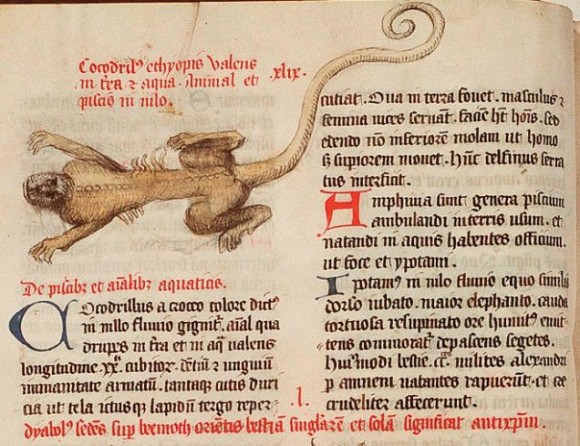 Cocodril᷒ ethyopis valens
in tra ⁊ aqua. Animal et
piscis in nilo.
.xlix.
De piscibꝫ et aialibꝫ aquaticis.
Cocodrillus a crocco colore dict᷒
in nillo fluuio gignit᷑. aīal qua
drupes in tra et in aq̄ valens
longitudine .xx. cubitor. dentiū ⁊ unguiū
inmanitate armatū. tantaqꝫ cutis duri
cia ut tela ictusqꝫ lapidū tergo reper
cutiat. Oua in terra fouet. masculus ⁊
femina uices seruāt. faciē ht̄ hoīs. sed
edendo nō inferiorē molam ut homo
sꝫ supiorem mouet. hūc delfinus serra
tus interficit.
Amphiuia sunt genera pisciūm
ambulandi in terris usum. et
natandi in aquis habentes officium.
ut foce et ypotami.
Ipotam᷒ in nilo fluuio equo similis
dorso iubato. maior elephanto. cauda
tortuosa resupinato ore hinnit᷒ emit
tens commorat᷑ depascens segetes.
Hui᷒modi bestie .cc. milites alexandri
p amnem natantes rapuerūt. et ce
crudeliter affecerunt.
.l.
dyabol᷒ sedēs sup beemoth orientis bestiā singlarē et solā significat antixpm̄.